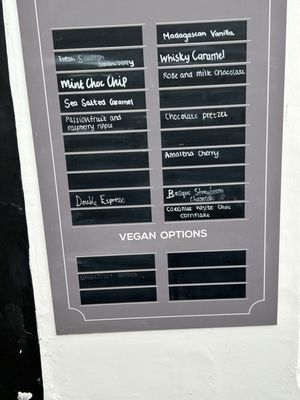 Fresh Scottish
Strawberry
Mint Choc Chip
Sea Salted Caramel
Passionfruit and
raspberry ripple
Double Espresso
Madagascan Vanilla
Whisky Caramel
Rose and milk chocolate
Chocolate pretzel
Amarena Cherry
Basque Strawberry
cheesecake
Coconut white choc
cornflake
VEGAN OPTIONS
Grapefruit